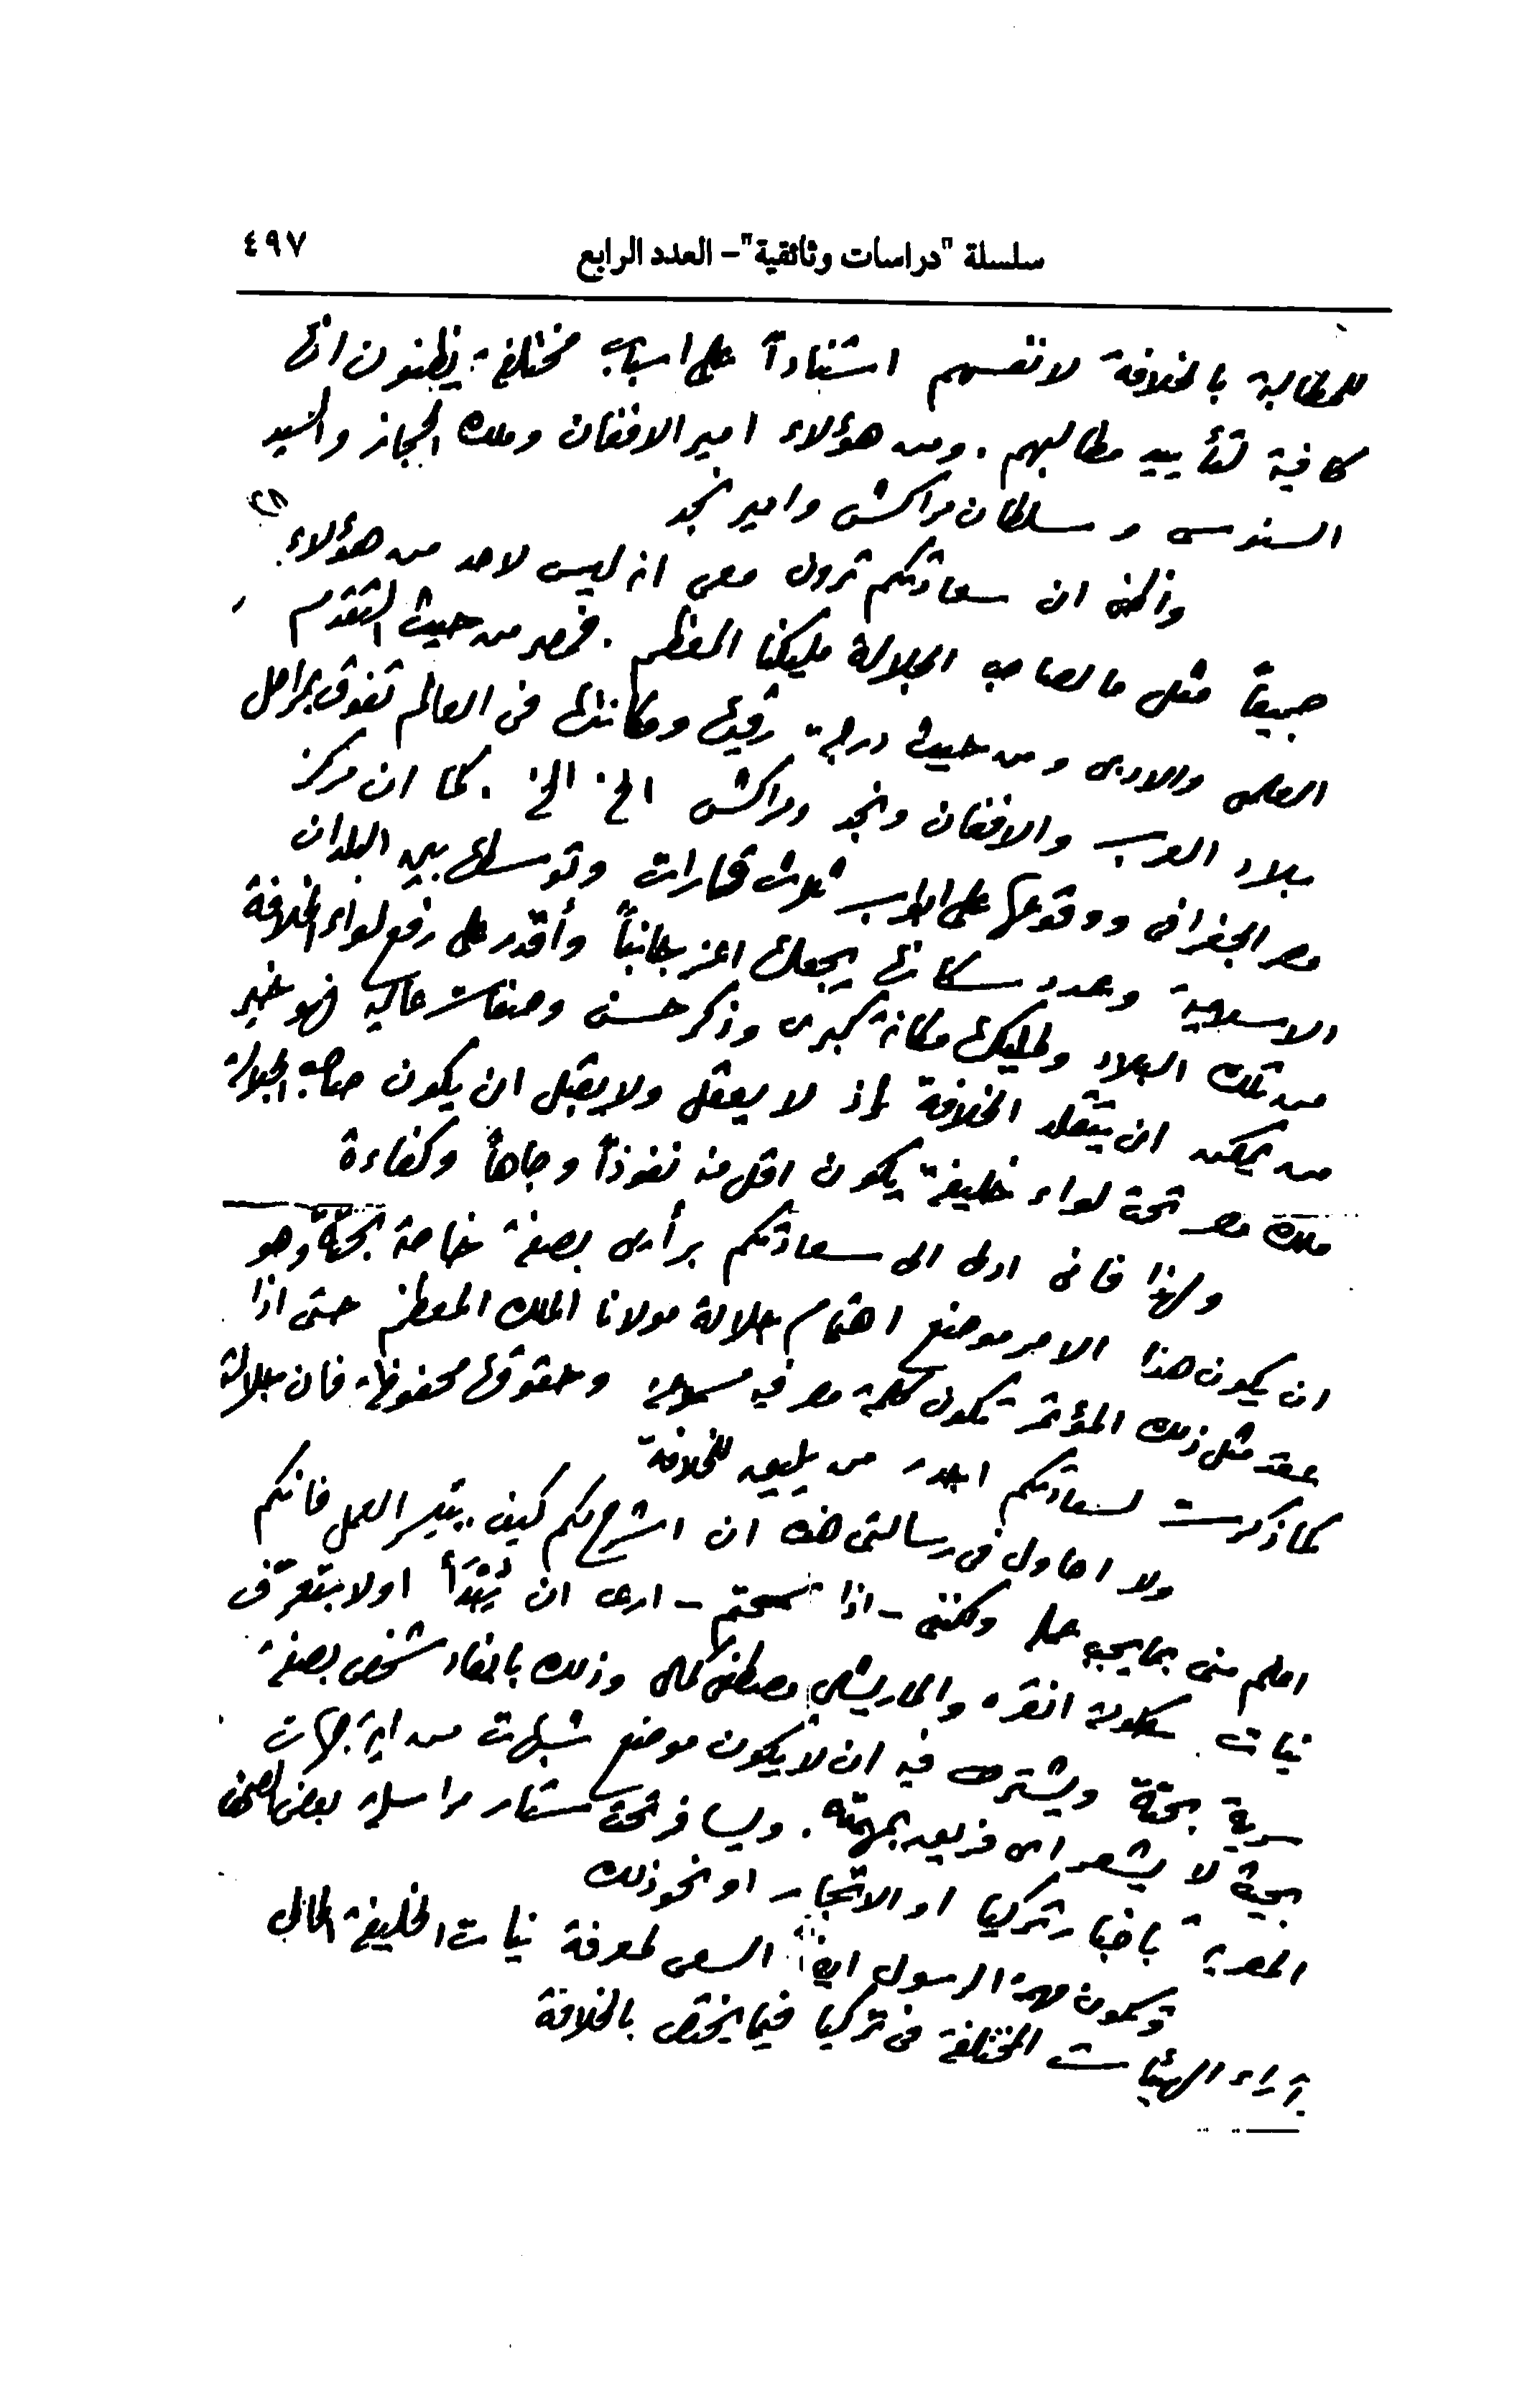 سلسلة "دراسات وثائقية" – العدد الرابع
٤٩٧
للمطالبة بالخلافة لانفسهم استناداً على اسباب مختلفة يظنون انها
كافية لتأييد مطالبهم . ومن هؤلاء امير الافغان وملك الحجاز والسيد
السنوسى وسلطان مراكش وامير نجد
واظن ان سعادتكم ترون معى انه ليس لاحد من هؤلاء
جميعاً مثل ما لصاحب الجلالة مليكنا المعظم . فمصر من حيث التقدم
العلمى والادبى ومن حيث درجة رقيها ومكانتها فى العالم تفوق بمراحل
بلاد العرب والافغان ونجد ومراكش الخ الخ . كما ان مركز
مصر الجغرافى ووقوعها على ابواب ثلاث قارات وتوسطها بين البلدان
الاسلامية وعدد سكانها يجعلها اعز جانباً وأقدر على رفع لواء الخلافة
من تلك البلاد ولمليكها مكانة كبرى وذكر حسن وصفات عاليه فهو خير
من يمكن ان يتقلد الخلافة إذ لا يعقل ولا يقبل ان يكون صاحب الجلالة
ملك مصر تحت لواء خليفة يكون اقل منه نفوذاً وجاهاً وكفاءة
ولهذا فانى ادلى الى سعادتكم برأيى بصفة خاصة بحتة وهو
ان يكون هذا الامر موضع اهتمام جلالة مولانا الملك المعظم حتى اذا
عقد مثل ذلك المؤتمر تكون كلمة مصر فيه مسموعة وحقوقها محفوظة فان جلالته
كما ذكرت لسعادتكم اجدر من يليق للخلافة
ولا احاول فى رسالتى هذه ان اشرح لكم كيف يتيسر العمل فانكم
اعلم منى بما يجب عمله ولكننى - اذا سمحتم - ارى ان يُبْتَدَأ اولا بتعرّف
نيات حكومة انقره والماريشال مصطفى كمال وذلك بايفاد شخص بصفة
سرية بحتة ويشترط فيه ان لا يكون موضع شبهات من اية جهات
بحيث لا يشعر اى فريق بمهمته . ويسافر تحت ستار مراسلة بعض الصحف
المصرية باخبار تركيا او الاتجار او نحو ذلك
وتكون مهمة الرسول ايضاً السعى لمعرفة نيات الخليفة الحالى
آراء الهيئات المختلفة فى تركيا فيما يختص بالخلافة